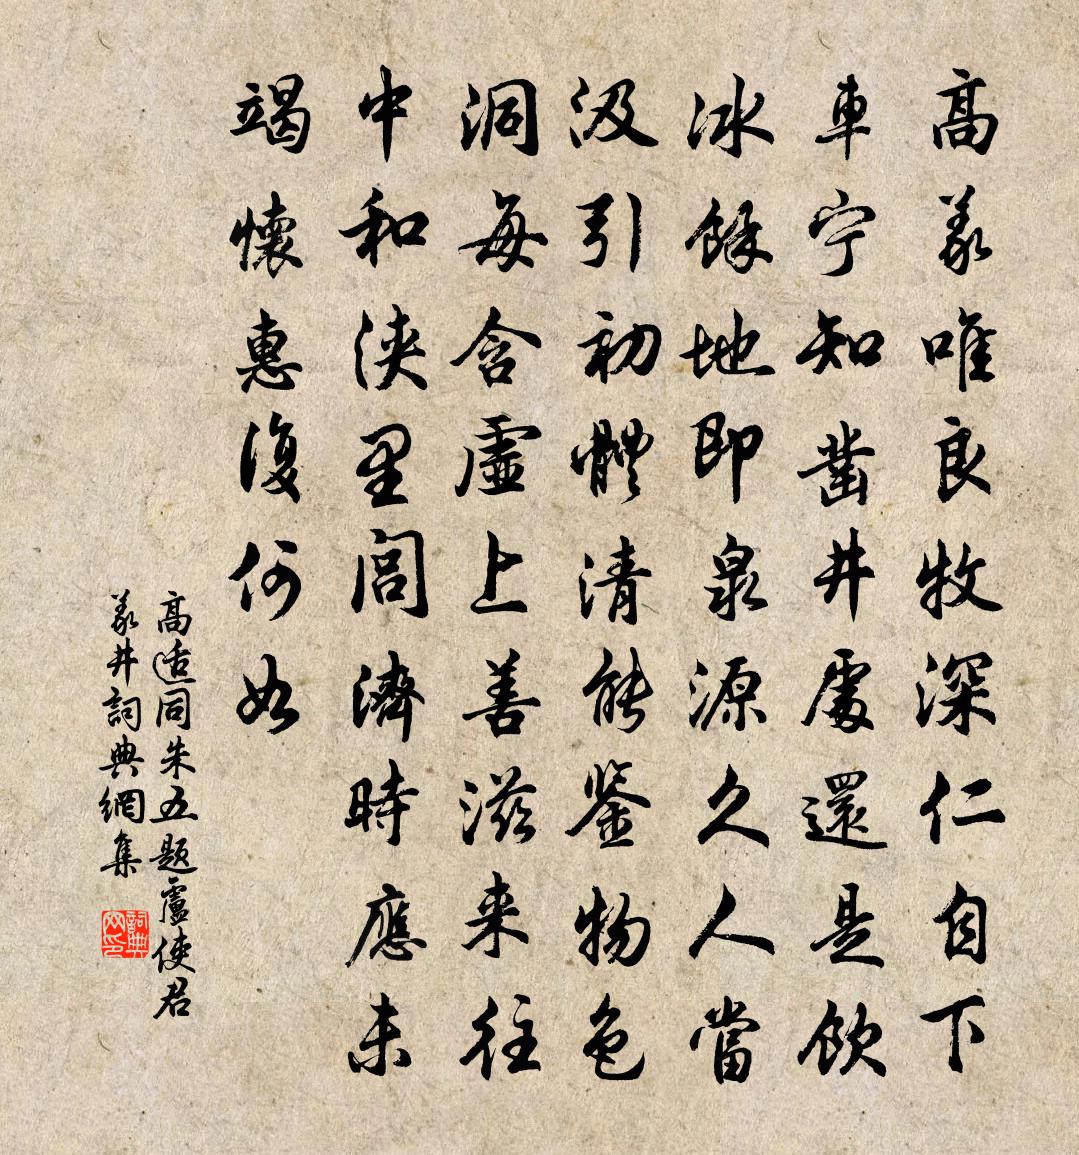 高義唯良牧深仁自下
車寧知鑿井處還是飲
冰餘地即泉源久人當
汲引初體清能鑒物色
洞每含虛上善滋來往
中和浹里閭濟時應未
竭懷惠復何如
高适同朱五題盧使君
義井詞典網集
詞典网印